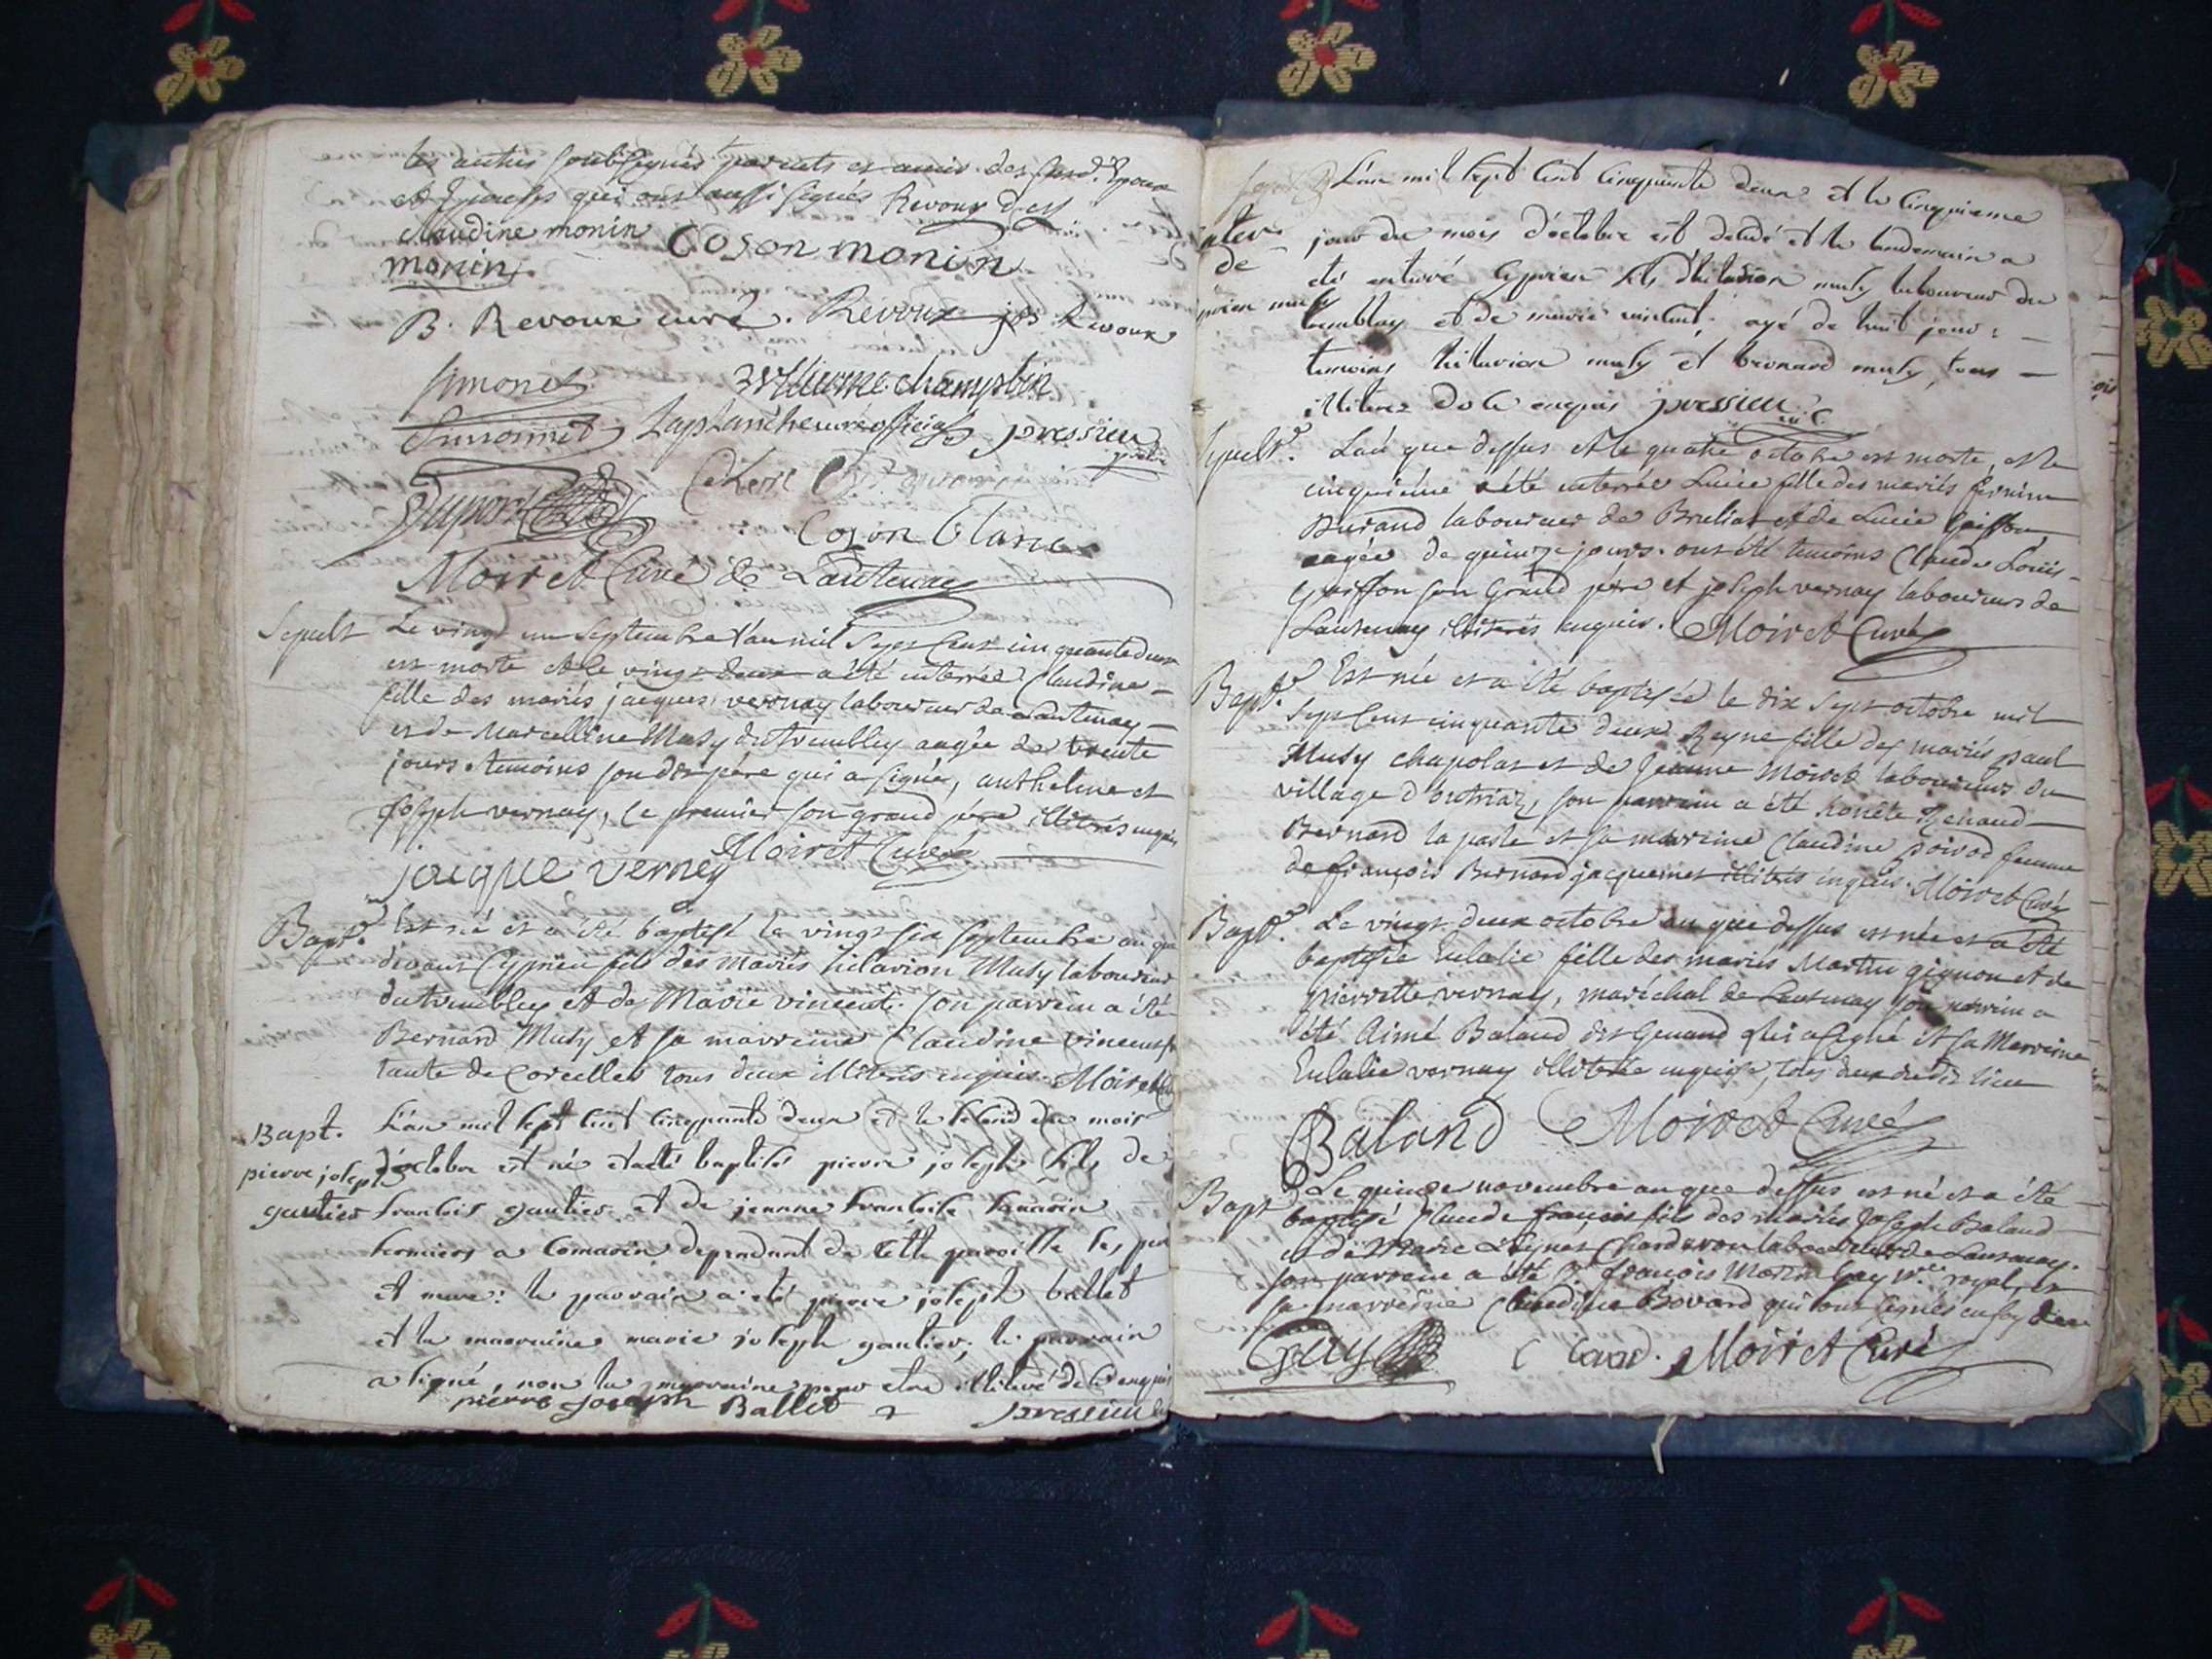 les autres soubsignés parents et amis des susd. Epoux
et Epouse qui ont aussi signés Revoux
Claudine monin
monin
Coson monin
B. Revoux curé. Revoux jos Revoux
Simonet
Willierme champetin
Simonnet Laplanche curé official pressieu
Dupont
Coson
Moiret Curé de Lantenay
Sepult
Le vingt un Septembre l'an mil Sept Cent cinquante deux
est morte et le vingt deux a été enterrée Claudine
fille des mariés jacques vernay laboureur de Lantenay
et de Marcelline Musy du tremblay aagée de trente
jours temoins son dit père qui a signé, anthelme et
Joseph vernay, le premier son grand père illiterés enquis
jacque verney Moiret Curé
Bapt.
Est né et a été baptisé le vingt six Septembre an que
devant Cyprien fils des mariés hilarion Musy laboureur
du tremblay et de Marie vincent. son parrein a été
Bernard Musy et sa marreine Claudine vincent
tante de Corcelles tous deux illiterés enquis. Moiret
Bapt.
pierre joseph
gautier
L'an mil sept cent cinquante deux et le second du mois
d'octobre est né et a été baptisé pierre joseph fils de
francois gautier et de jeanne francoise
fermiers a Comarin dependant de cette paroisse les
et mere: le parrain a été pierre joseph ballet
et la marraine marie joseph gautier; le parrain
a signé, non la marraine pour etre illiteré de ce enquis
pierre Joseph Ballet pressieu
L'an mil sept cent cinquante deux et le cinquieme
jour du mois d'octobre est decedé et le landemain a
de
été enterré Cyprien fils d'hilarion musy laboureur du
musy
tremblay et de marie vincent, agé de huit jours
temoins hillarion musy et bernard musy, tous
illiterez de ce enquis pressieu
Sepult.
L'an que dessus et le quatre octobre est morte, et le
cinquième a été enterrée Lucie fille des mariés
Durand laboureur de Brulias et de Lucie Goiffon
aagée de quinze jours. ont été temoins Claude Louis
Goiffon son Grand père et joseph vernay laboureurs de
Lantenay illiterés enquis. Moiret Curé
Bapt.
Est née et a été baptisée le dix Sept octobre mil
Sept Cent cinquante deux Reyne fille des mariés paul
Musy chapolat et de Jeanne Moiret laboureurs du
village d'outriaz, son parrein a été honête Renaud
Bernard la paste et sa marreine Claudine poirod femme
de françois Bernard jacquemet illiterés enquis. Moiret Curé
Bapt.
Le vingt deux octobre an que dessus est née et a été
baptisée Eulalie fille des mariés Martin gignon et de
pierrette vernay, maréchal de Lantenay son parrein a
été Aimé Baland dit Genand qui a signé et sa Marreine
Eulalie vernay illiterée enquise, tous deux dudit lieu
Baland Moiret Curé
Bapt
Le quinze novembre an que dessus est né et a été
baptisé Claude françois fils des mariés Joseph Baland
et de Marie Agnes Charderon laboureurs de Lantenay.
son parrein a été Sr. françois Marin Gay royal, et
sa marreine Claudine Bovard qui ont signés
Gay C bovard. Moiret Curé